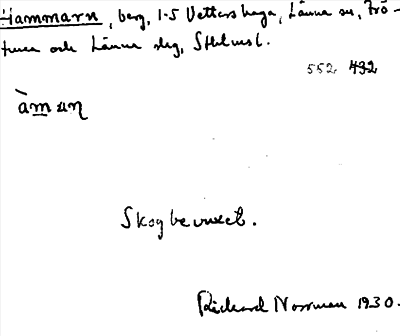 Hammarn, berg, 1-5 Vettershaga, Länna sn, Frö-
tuna och Länna slg, Sthlmsl.
552 432
àmaɳ
Skogbevuxet.
Rickard Norrman 1930.